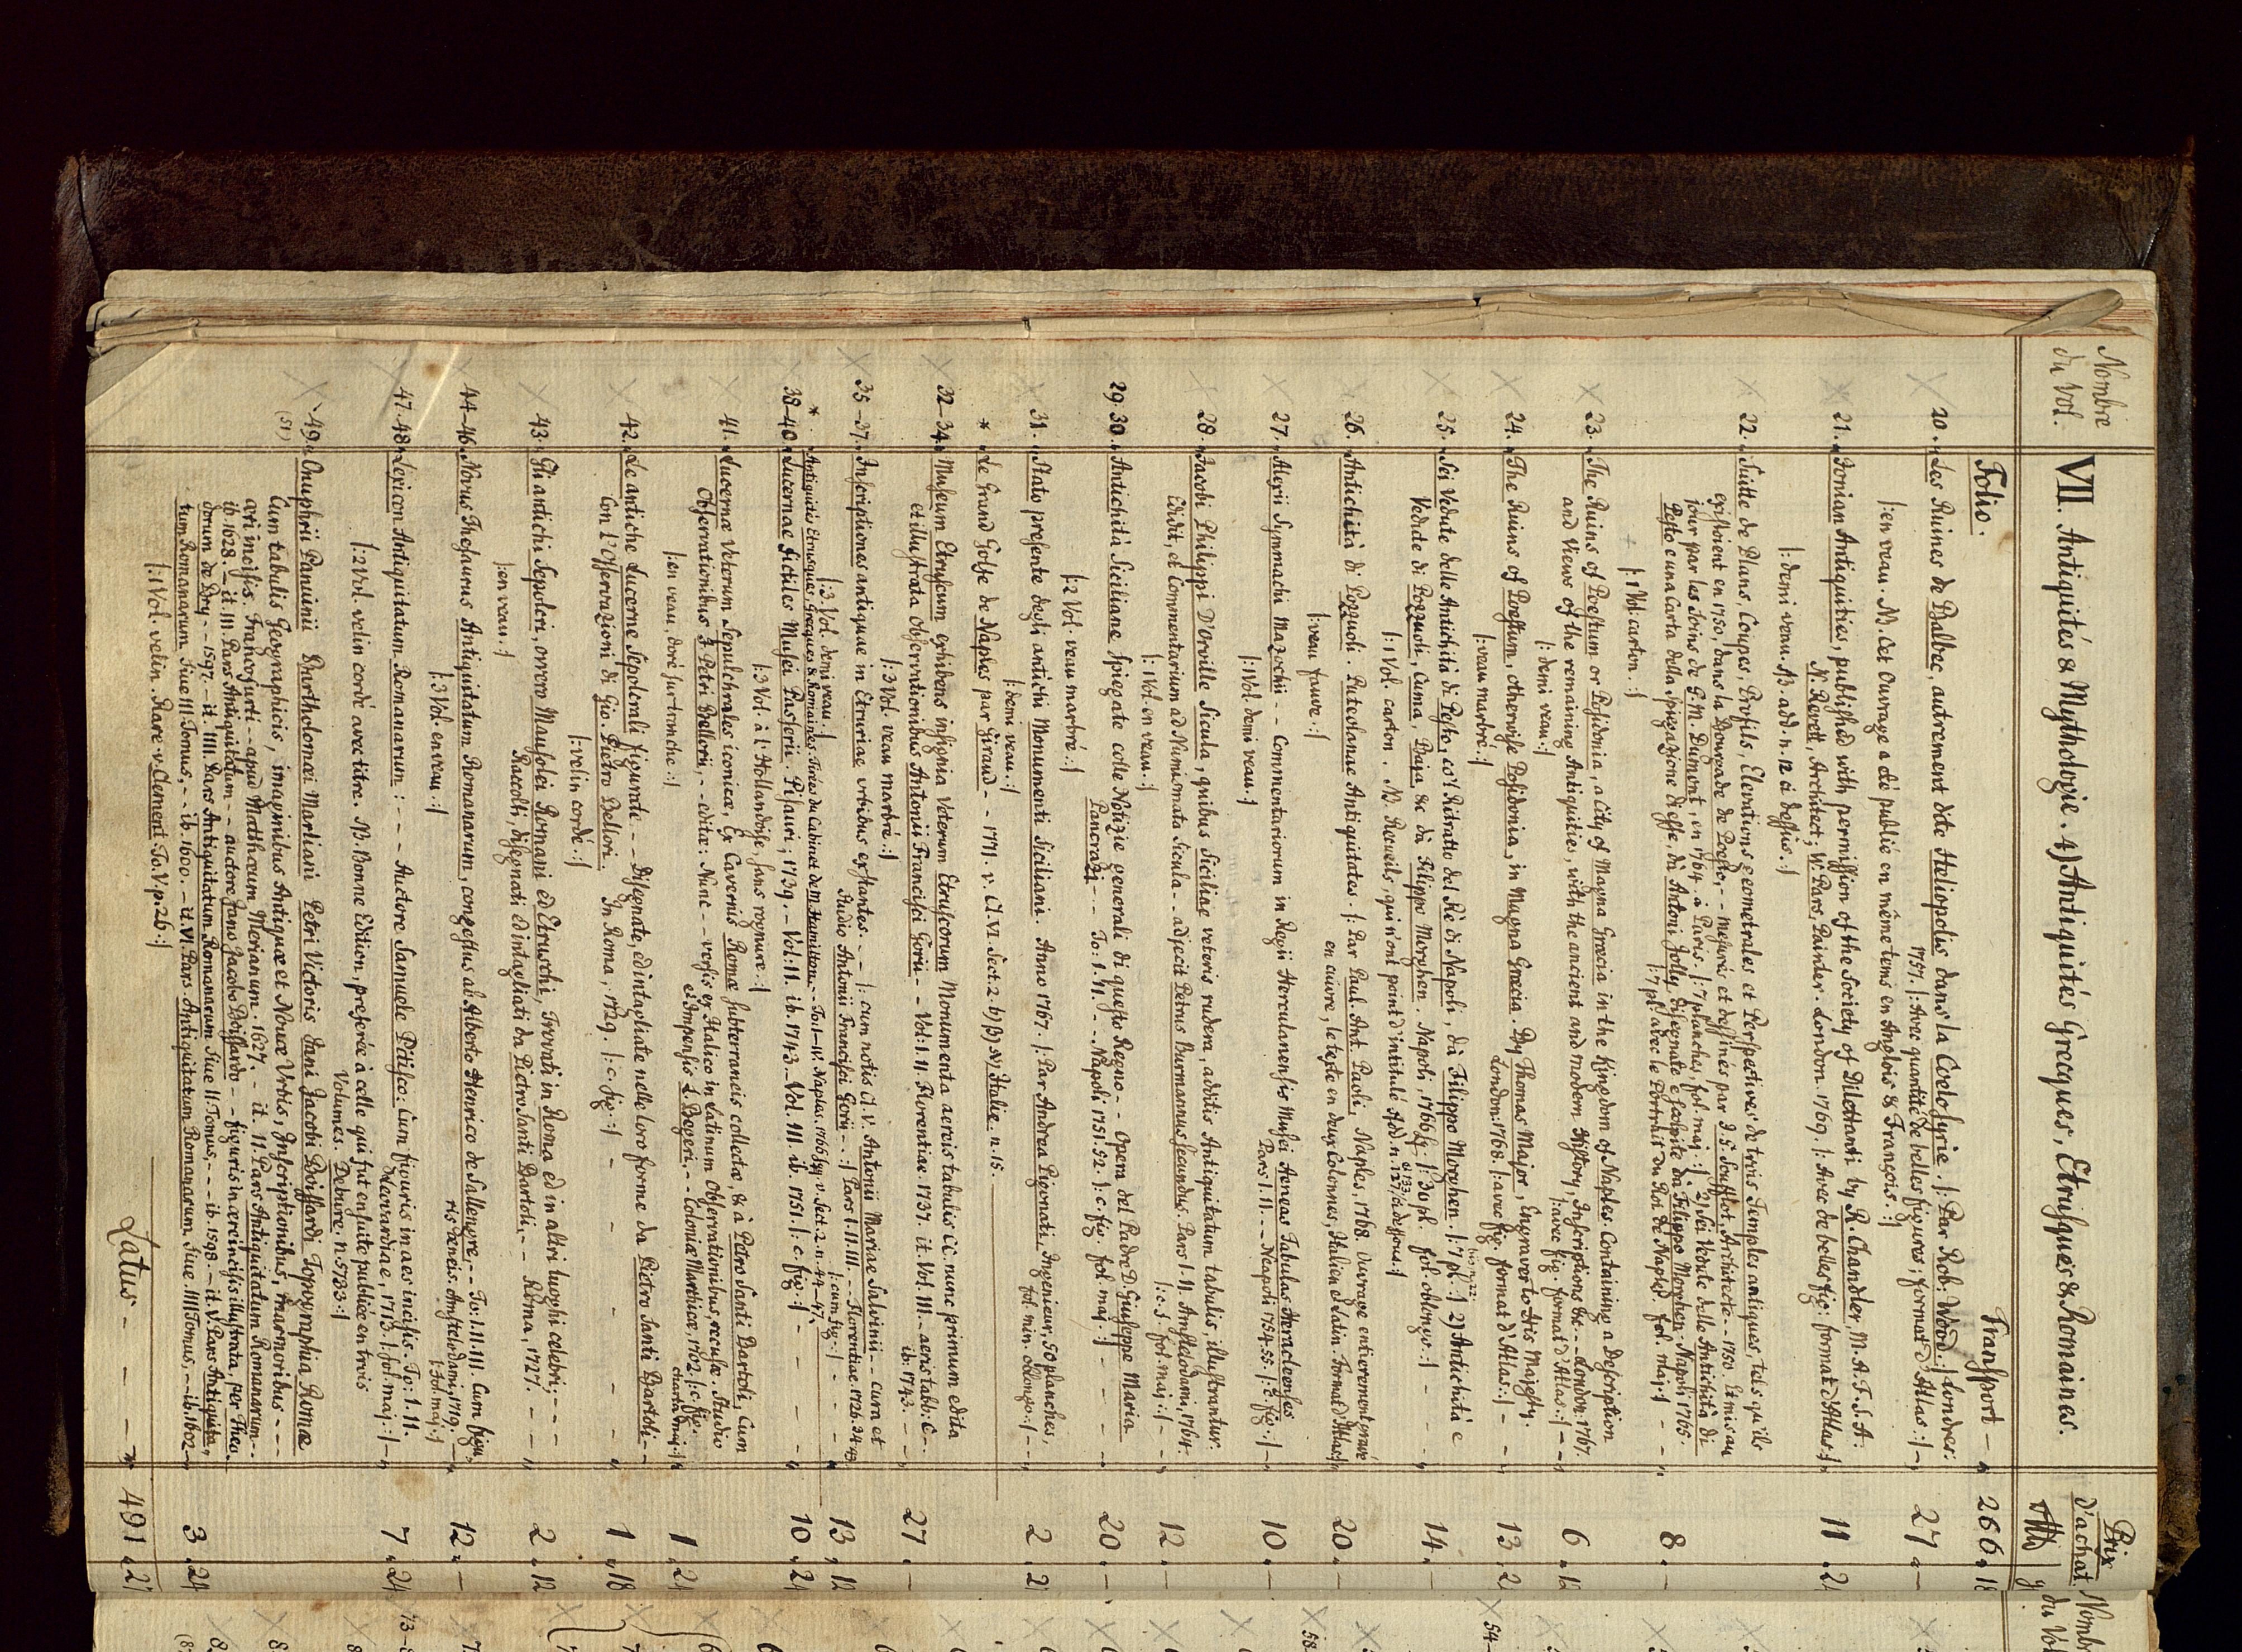 Nombre
du Vol.
VII. Antiquités & Mythologie. 4) Antiquités Grecques, Etrusques & Romaines.
Prix
d'achat.
Folio.
Transport — „ 266 „ 18
20. Les Ruines de Balbec, autrement dite Heliopolis dans la Coelosyrie. |: Par Rob: Wood :| Londres:
1757. |: Avec quantité de belles figures, format d'Atlas :| — „ 27 „ —
|: en veau. NB. Cet Ouvrage a été publié en même tems en Anglois & François. :|
21. Ionian Antiquities, published with permission of the Society of Dilettanti by R. Chandler M. A. F. S. A:
N. Revett, Architect; W: Pars, Painter. London. 1769. |: Avec de belles fig: format d'Atlas :| „ 11 „ 21
|: demi veau. NB. add. n. 12 ci dessus. :|
22. Suitte de Plans, Coupes, Profils, Elevations geometrales et Perspectives de trois Temples antiques, tels qu'ils
existoient en 1750, dans la Bourgade de Poesto, - - mesurés et dessinés par J. G. Soufflot, Architecte - - 1750. Et mis au
jour par les soins de G. M. Dumont, en 1764. à Paris. |: 7 planches, fol. maj: :| 2) Sei Vedute delle Antichità di
Pesto e una Carta della spiegazione di esse, da Antoni Jolly, disegnate e scolpite da Filippo Morghen. Napoli 1765.
|: 7 pl: avec le Portrait du Roi de Naples. fol. maj: :| - - „ 8 „ —
|: 1 Vol: carton. :|
23. The Ruins of Poestum or Posidonia, a City of Magna Græcia in the Kingdom of Naples. Containing a Description
and Views of the remaining Antiquities, with the ancient and modern History, Inscriptions &c - - London. 1767.
|: avec fig. format d'Atlas. :| — „ 6 „ 12
|: demi veau :|
24. The Ruins of Poestum, otherwise Posidonia, in Magna Græcia. By Thomas Major, Engraver to His Majesty.
London. 1768. |: avec fig. format d'Atlas :| - - „ 13 „ 21
|: veau marbré :|
25. Sei Vedute delle Antichità di Pesto, co'l Ritratto del Rè di Napoli, dà Filippo Morghen. |: 7 pl. :| 2) Antichità e
Vedute di Pozzuoli, Cuma, Baja &c dà Filippo Morghen. Napoli. 1766 sq. |: 30 pl. fol. oblongo. :| - - „ 14 „ —
|: 1 Vol. carton. NB. Recueils, qui n'ont point d'intitulé. Add. n. 127 & 133 ci dessous :|
26. Antichità di Pozzuoli. Puteolanae Antiquitates. |: Par Paul. Ant. Paoli, Naples, 1768. Ouvrage entierement gravé
en cuivre, le texte en deux Colonnes, Italien et Latin. format d'Atlas :| „ 20 „ —
|: veau fauve. :|
27. Alexii Symmachi Mazochii - - Commentariorum in Regii Herculanensis Musei Aeneas Tabulas Heracleenses
Pars I. II. - - Neapoli 1754. 55. |: c. fig: :| — „ 10 „ —
|: 1 Vol. demi veau. :|
28. Jacobi Philippi D'Orville Sicula, quibus Siciliae veteris rudera, additis Antiquitatum tabulis, illustrantur.
Edidit, et Commentarium ad Numismata Sicula - - adjecit Petrus Burmannus Secundus. Pars I. II. Amstelodami, 1764.
|: c. f. fol. maj: :| - - „ 12 „ —
|: 1 Vol. en veau. :|
29. 30. Antichità Siciliane spiegate colle Notizie generali di questo Regno - - Opera del Padre D. Giuseppe Maria
Pancrazi - - To: I. II. - - Napoli 1751. 52. |: c. fig. fol. maj. :| - - - 20 „ —
|: 2 Vol. veau marbré :|
31. Stato presente degli antichi Monumenti Siciliani. Anno 1767. |: Par Andrea Pigonati, Ingenieur, 50 planches,
fol. min. oblongo. :| - - „ 2 „ 2
|: demi veau. :|
* Le Grand Golfe de Naples par Giraud - - 1771. v. Cl. VI. Sect. 2. b) β) א) Italie. n. 15.
32-34. Museum Etruscum exhibens insignia Veterum Etruscorum Monumenta aereis tabulis CC. nunc primum edita
et illustrata Observationibus Antonii Francisci Gorii - - Vol: I. II. Florentiae. 1737. it. Vol. III. - aeris tabb: C - -
ib. 1743. - - „ 27 „ —
|: 3 Vol. veau marbré :|
35-37. Inscriptiones antiquae in Etruriae urbibus exstantes. - - |: cum notis Cl. V. Antonii Mariae Salvinii - - cura et
Studio Antonii Francisci Gorii - - :| Pars I. II. III. - - Florentiae. 1726. 34. 43.
|: cum fig: :| - - „ 13 „ 12
|: 3 Vol. demi veau. :|
* Antiquités Etrusques, Grecques & Romaines. Tirées du Cabinet de M. Hamilton. - - To. I-IV. Naples. 1766 sqq. v. Sect. 2. n. 44-47.
38-40. Lucernae fictiles Musei Passerii. Pisauri, 1739. - Vol: II. ib. 1743. - Vol. III. ib. 1751. |: c. fig. :| - - „ 10 „ 21
|: 3 Vol. à l'Hollandoise sans rognure. :|
41. Lucernæ Veterum Sepulchrales iconicæ, Ex Cavernis Romæ subterraneis collectæ, & à Petro Santi Bartoli, Cum
Observationibus J. Petri Bellorii, - - editæ: Nunc - - versis ex Italico in Latinum Observationibus, recusæ. Studio
et Impensis L. Begeri. - - Coloniæ Marchicæ, 1702. |: c. fig.
charta maj: :| „ 1 „ 21
|: en veau, doré sur tranche :|
42. Le antiche Lucerne Sepolcrali figurate - - Disegnate, ed intagliate nelle loro forme da Pietro Santi Bartoli - -
Con l'Osservazioni di Gio. Pietro Bellori. In Roma, 1729. |: c. fig: :| - - - - „ 1 „ 18
|: velin cordé :|
43. Gli antichi Sepolcri, overo Mausolei Romani ed Etruschi, Trovati in Roma ed in altri luoghi celebri; - - -
Raccolti, disegnati ed intagliati da Pietro Santi Bartoli. - - Roma, 1727. - - - „ 2 „ 12
|: en veau. :|
44-46. Novus Thesaurus Antiquitatum Romanarum, congestus ab Alberto Henrico de Sallengre, - - To: I. II. III. Cum figuris æneis. Amstelodami, 1719.
|: fol. maj: :| „ 12 „ —
|: 3 Vol. en veau :|
47. 48. Lexicon Antiquitatum Romanarum: - - Auctore Samuele Pitisco: Cum figuris in aes incisis. To: I. II.
Leovardiae, 1713. |: fol. maj: :| — „ 7 „ 24
|: 2 Vol. velin cordé avec titre. NB. Bonne Edition, preferée à celle qui fut ensuite publiée en trois
Volumes. Debure. n. 5793 :|
49. Onuphrii Panvinii Bartholomæi Marliani Petri Victoris Jani Jacobi Boissardi Topographia Romæ
(51)
Cum tabulis Geographicis, imaginibus Antiquæ et Novæ Urbis, Inscriptionibus, Marmoribus - - -
æri incisis. Francofurti - - apud Matthæum Merianum. 1627. - it. II. Pars Antiquitatum Romanarum - -
ib. 1628. - it. III. Pars Antiquitatum - - auctore Jano Jacobo Boissardo - - figuris in ære incisis illustrata, per Theodorum de Bry. - - 1597. - it. IIII. Pars Antiquitatum Romanarum Sive II Tomus, - - - ib. 1598. - it. V. Pars Antiquitatum Romanarum Sive III Tomus, - - ib. 1600. - it. VI. Pars Antiquitatum Romanarum, Sive IIII Tomus, - - ib. 1602 — „ 3 „ 24
|: 1 Vol. velin. Rare v. Clement To. V. p. 26 :|
Latus - - - — 491 „ 21
Nombre
du Vol